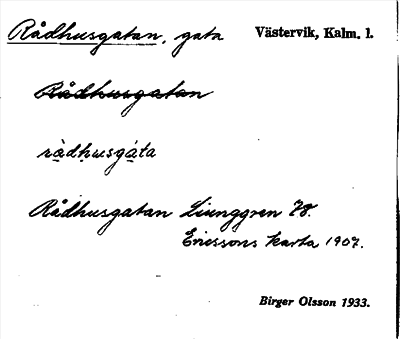 Rådhusgatan, gata Västervik, Kalm. l.
Rådhusgatan
rådhusgáta
Rådhusgatan Ljunggren 78.
Ericssons karta 1907.
Birger Olsson 1933.